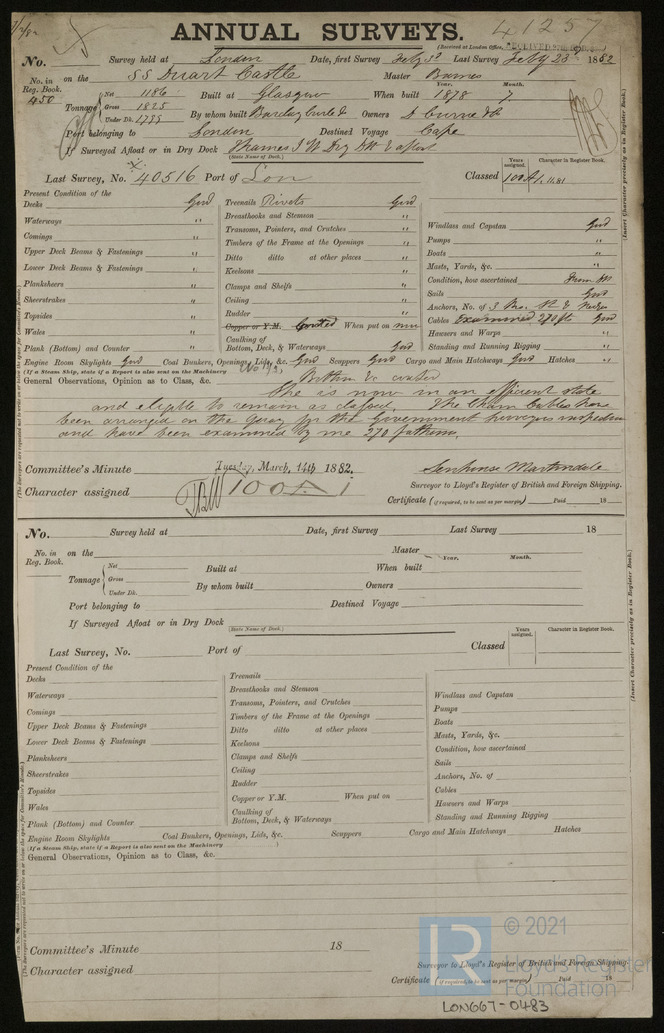 ANNUAL SURVEYS.
41257
(Received at London Office,
No. Survey held at London Date, first Survey Feby Last Survey Feby 23 1882
No. in Reg. Book. 450 on the SS Duart Castle Master Barnes
Tonnage Net 1186 Built at Glasgow When built Year. 1878 Month. 7
Gross 1825
Under Dk. 1755 By whom built Barclay Curle & Owners D Currie & Co
Port belonging to London Destined Voyage Cape
If Surveyed Afloat or in Dry Dock Thames I W Dry Dk & afloat
(State Name of Dock.)
Last Survey, No. 40516 Port of Lon Classed Years assigned. 100A1 Character in Register Book. 11.81
(Insert Character precisely as in Register Book.)
Present Condition of the
Decks Good
Waterways "
Comings "
Upper Deck Beams & Fastenings "
Lower Deck Beams & Fastenings "
Planksheers "
Sheerstrakes "
Topsides "
Wales "
Plank (Bottom) and Counter "
Treenails Rivets Good
Breasthooks and Stemson "
Transoms, Pointers, and Crutches "
Timbers of the Frame at the Openings "
Ditto ditto at other places "
Keelsons "
Clamps and Shelfs "
Ceiling "
Rudder "
Copper or Y.M. Coated When put on now
Caulking of Bottom, Deck, & Waterways Good
Windlass and Capstan Good
Pumps "
Boats "
Masts, Yards, &c. "
Condition, how ascertained from
Sails Good
Anchors, No. of 3 &
Cables Examined 270 fs Good
Hawsers and Warps "
Standing and Running Rigging "
Engine Room Skylights Good Coal Bunkers, Openings, Lids, &c. Good Scuppers Good Cargo and Main Hatchways Good Hatches "
(If a Steam Ship, state if a Report is also sent on the Machinery
General Observations, Opinion as to Class, &c. Bottom &c coated
She is now in an efficient state
and eligible to remain as classed. The Chain Cables have
been arranged on the Quay for the Government Surveyors inspection
and have been examined by me 270 fathoms.
Committee's Minute Tuesday, March, 14th 1882. Senhouse Martindale
Surveyor to Lloyd's Register of British and Foreign Shipping.
Character assigned 100A1
Certificate (if required, to be sent as per margin) Paid 18
No. Survey held at Date, first Survey Last Survey 18
No. in Reg. Book. on the Master
Tonnage Net Built at When built Year. Month.
Gross
Under Dk. By whom built Owners
Port belonging to Destined Voyage
If Surveyed Afloat or in Dry Dock
(State Name of Dock.)
Last Survey, No. Port of Classed Years assigned. Character in Register Book.
(Insert Character precisely as in Register Book.)
Present Condition of the
Decks
Waterways
Comings
Upper Deck Beams & Fastenings
Lower Deck Beams & Fastenings
Planksheers
Sheerstrakes
Topsides
Wales
Plank (Bottom) and Counter
Treenails
Breasthooks and Stemson
Transoms, Pointers, and Crutches
Timbers of the Frame at the Openings
Ditto ditto at other places
Keelsons
Clamps and Shelfs
Ceiling
Rudder
Copper or Y.M. When put on
Caulking of Bottom, Deck, & Waterways
Windlass and Capstan
Pumps
Boats
Masts, Yards, &c.
Condition, how ascertained
Sails
Anchors, No. of
Cables
Hawsers and Warps
Standing and Running Rigging
Engine Room Skylights Coal Bunkers, Openings, Lids, &c. Scuppers Cargo and Main Hatchways Hatches
(If a Steam Ship, state if a Report is also sent on the Machinery
General Observations, Opinion as to Class, &c.
Committee's Minute 18
Surveyor to Lloyd's Register of British and Foreign Shipping.
Character assigned
Certificate (if required, to be sent as per margin) Paid 18
LR © 2021
Lloyd's Register
Foundation
LON667-0483